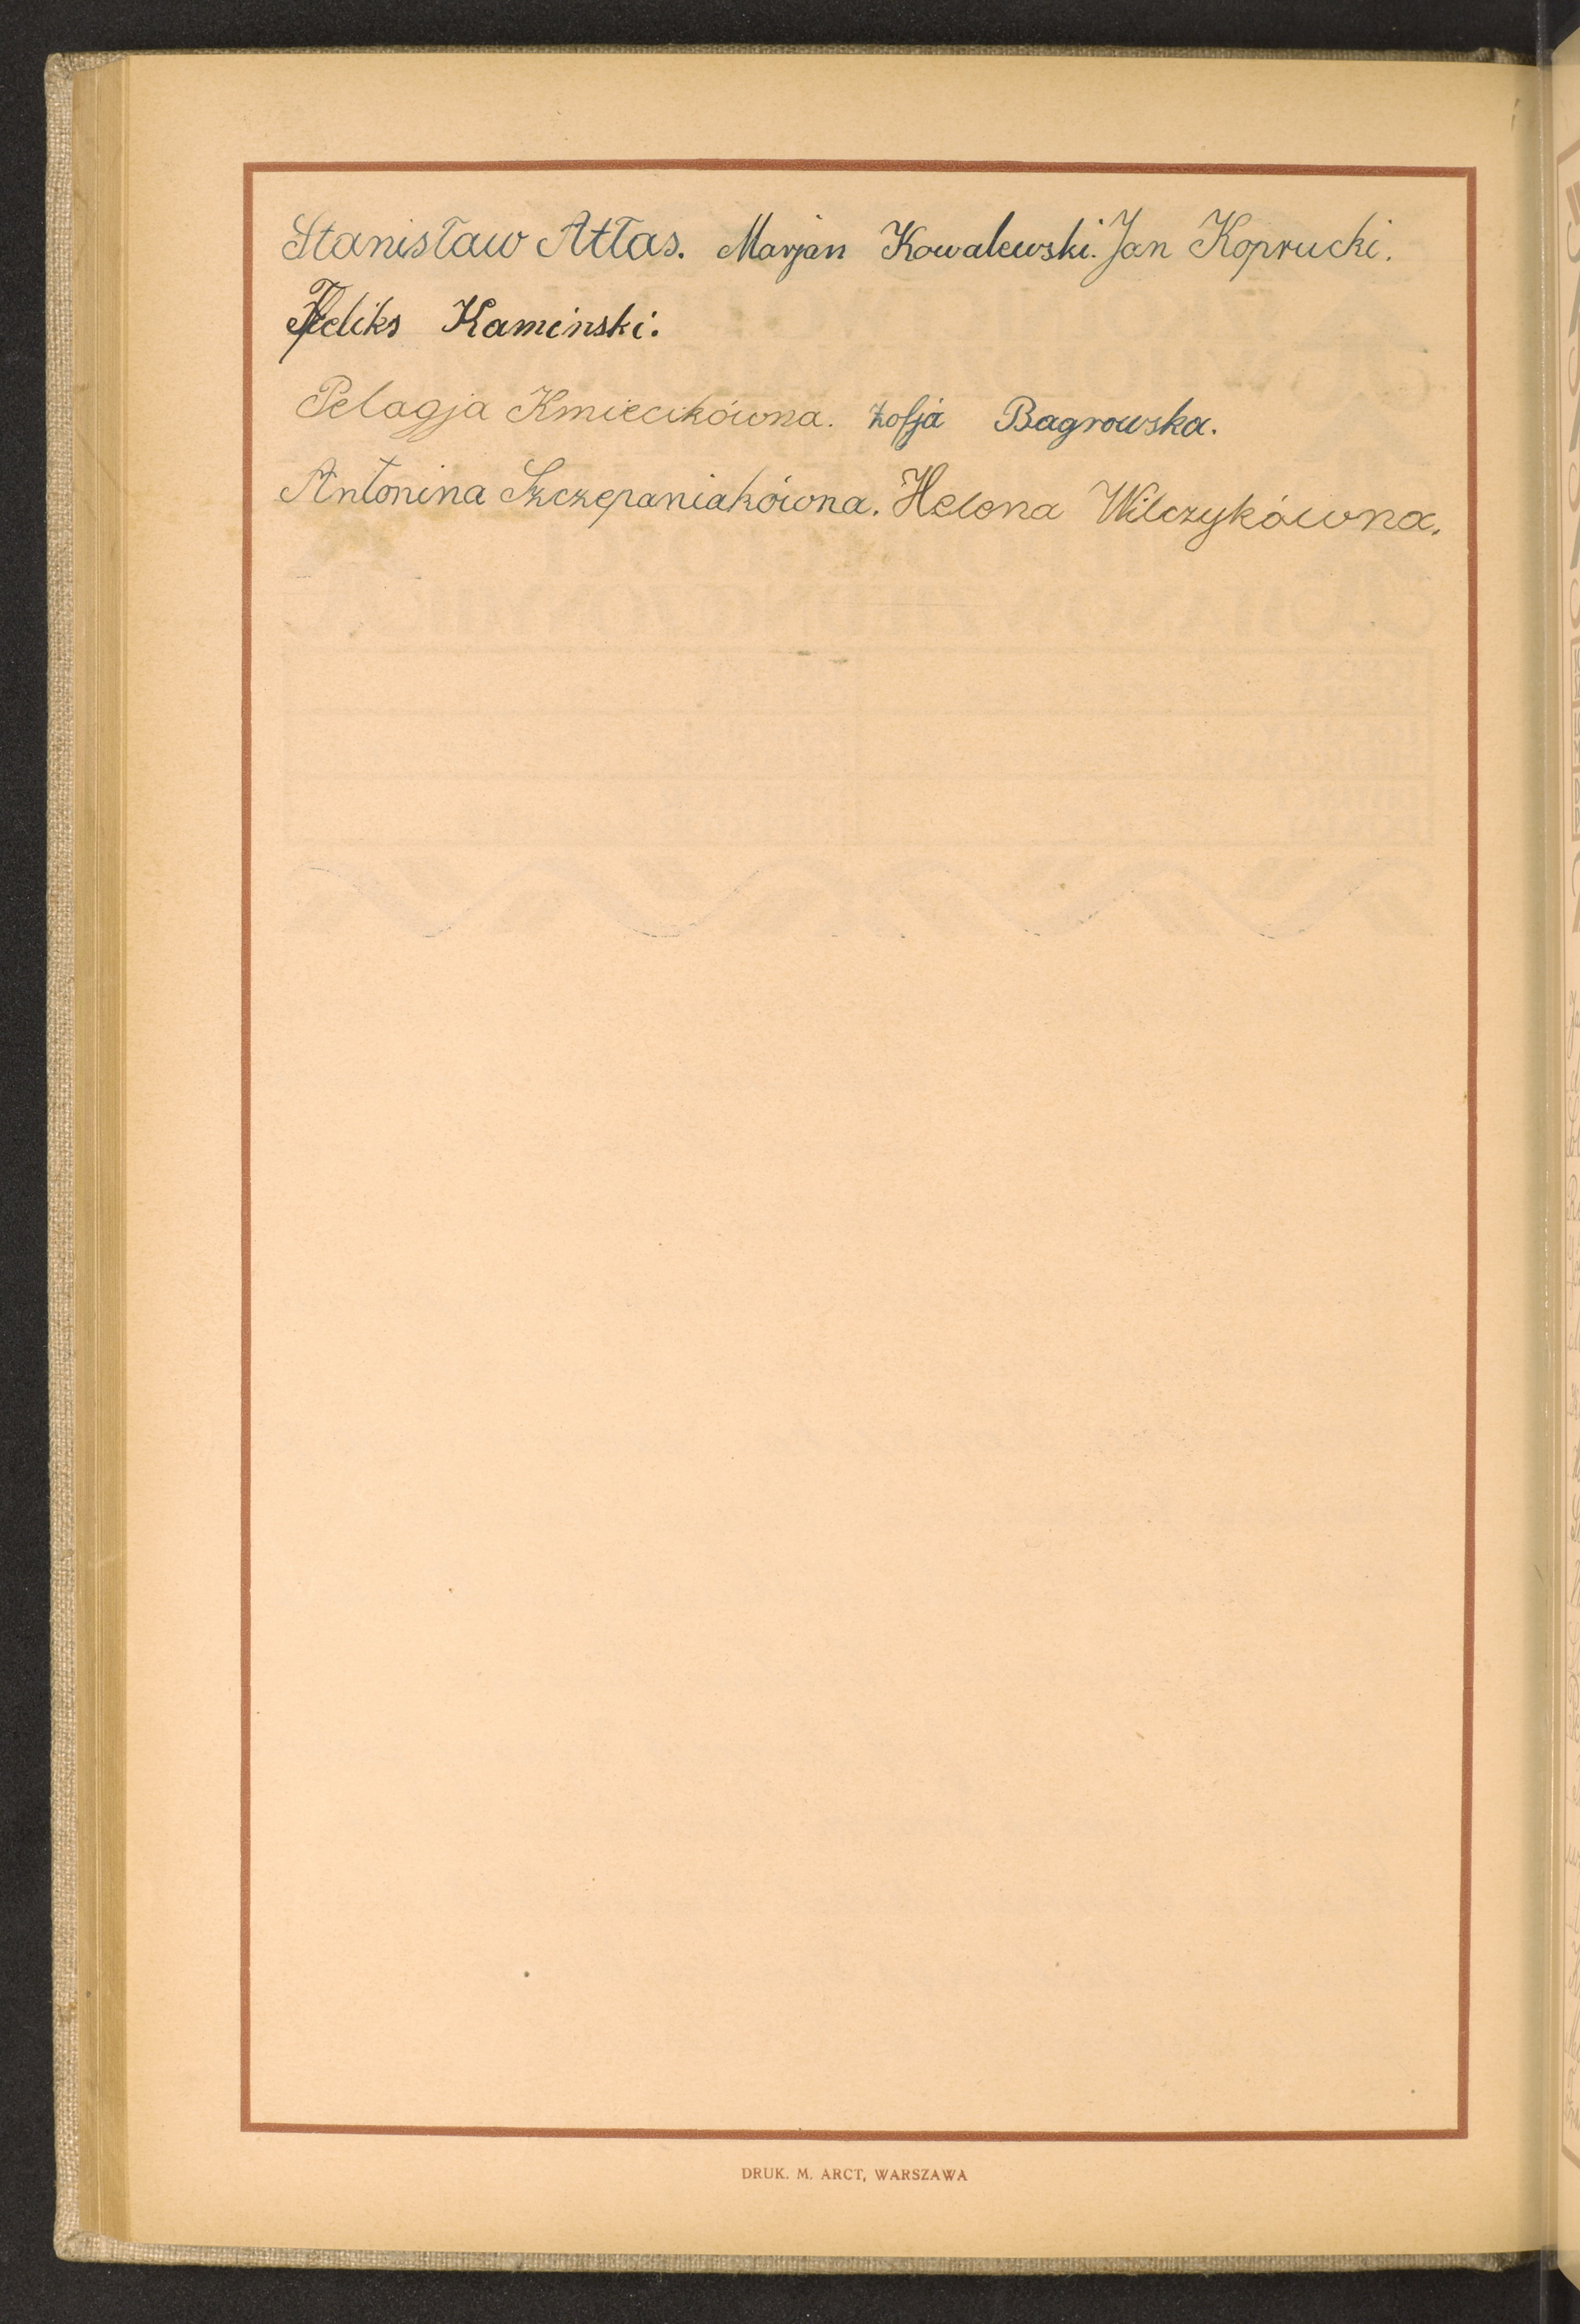 Stanisław Atłas. Marjan Kowalewski. Jan Koprucki.
Feliks Kaminski.
Pelagja Kmiecikówna. Zofja Bagrowska.
Antonina Szczepaniakówna. Helena Wilczykówna.
DRUK. M. ARCT, WARSZAWA